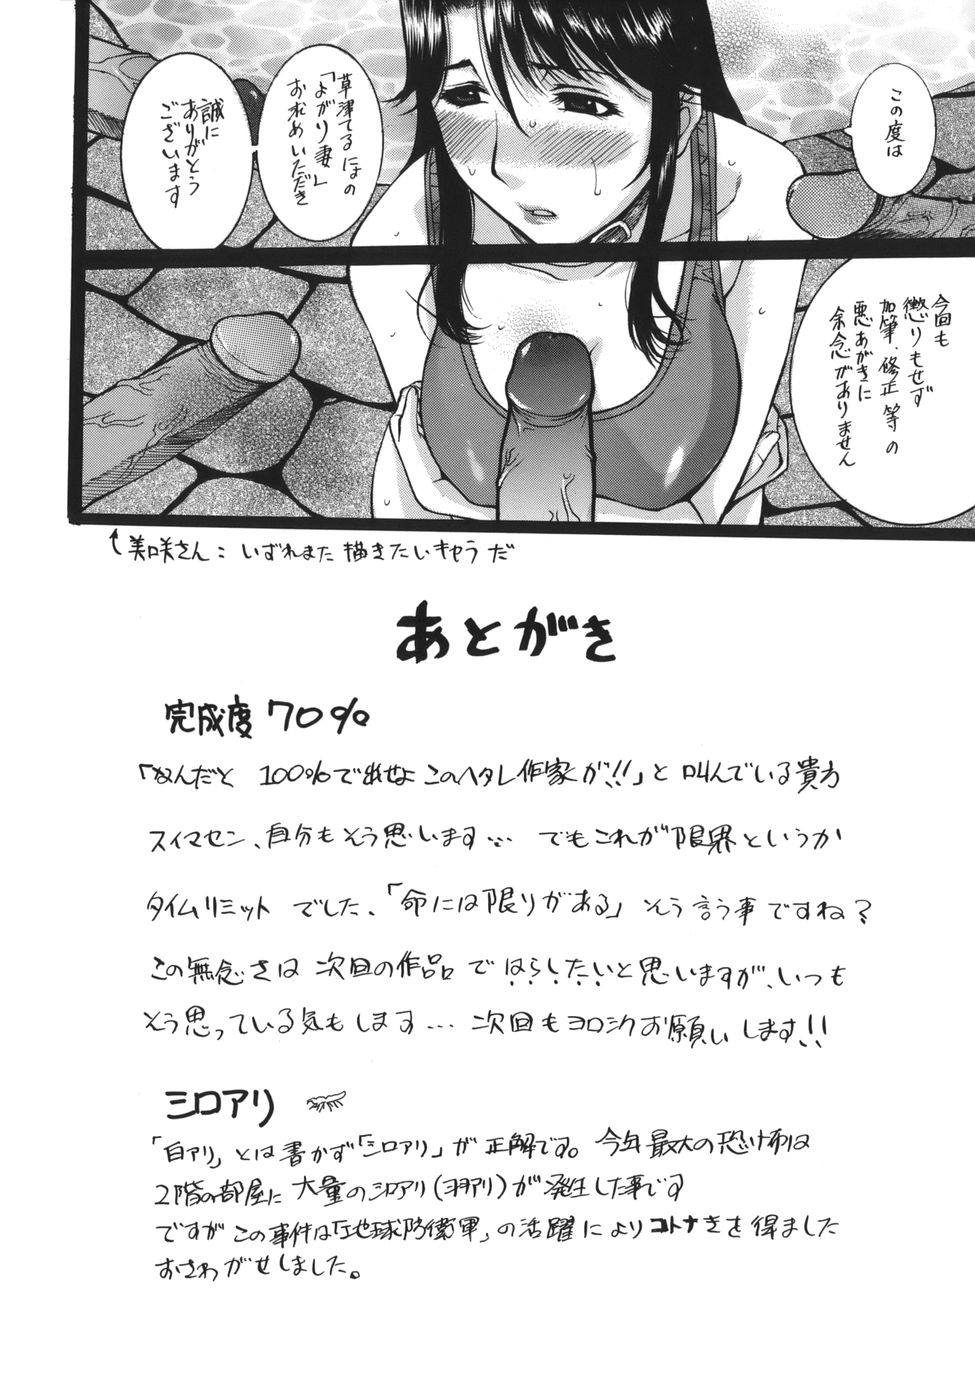 この度は
草津てるにょの
「よがり妻」
お求めいただき
誠に
ありがとう
ございます
今回も
懲りもせず
加筆、修正等の
悪あがきに
余念がありません
美咲さん：いずれまた描きたいキャラだ
あとがき
完成度70%
「なんだと 100%で出せよこのヘタレ作家が!!」と叫んでいる貴方
スイマセン、自分もそう思います… でもこれが限界というか
タイムリミットでした、「命には限りがある」そう言う事ですね？
この無念さは次回の作品ではらしたいと思いますが、いつも
そう思っている気もします… 次回もヨロシクお願いします!!
シロアリ
「白アリ」とは書かず「シロアリ」が正解です。今年最大の恐怖は
2階の部屋に大量のシロアリ(羽アリ)が発生した事です
ですがこの事件は「地球防衛軍」の活躍によりコトナキを得ました
おさわがせしました。